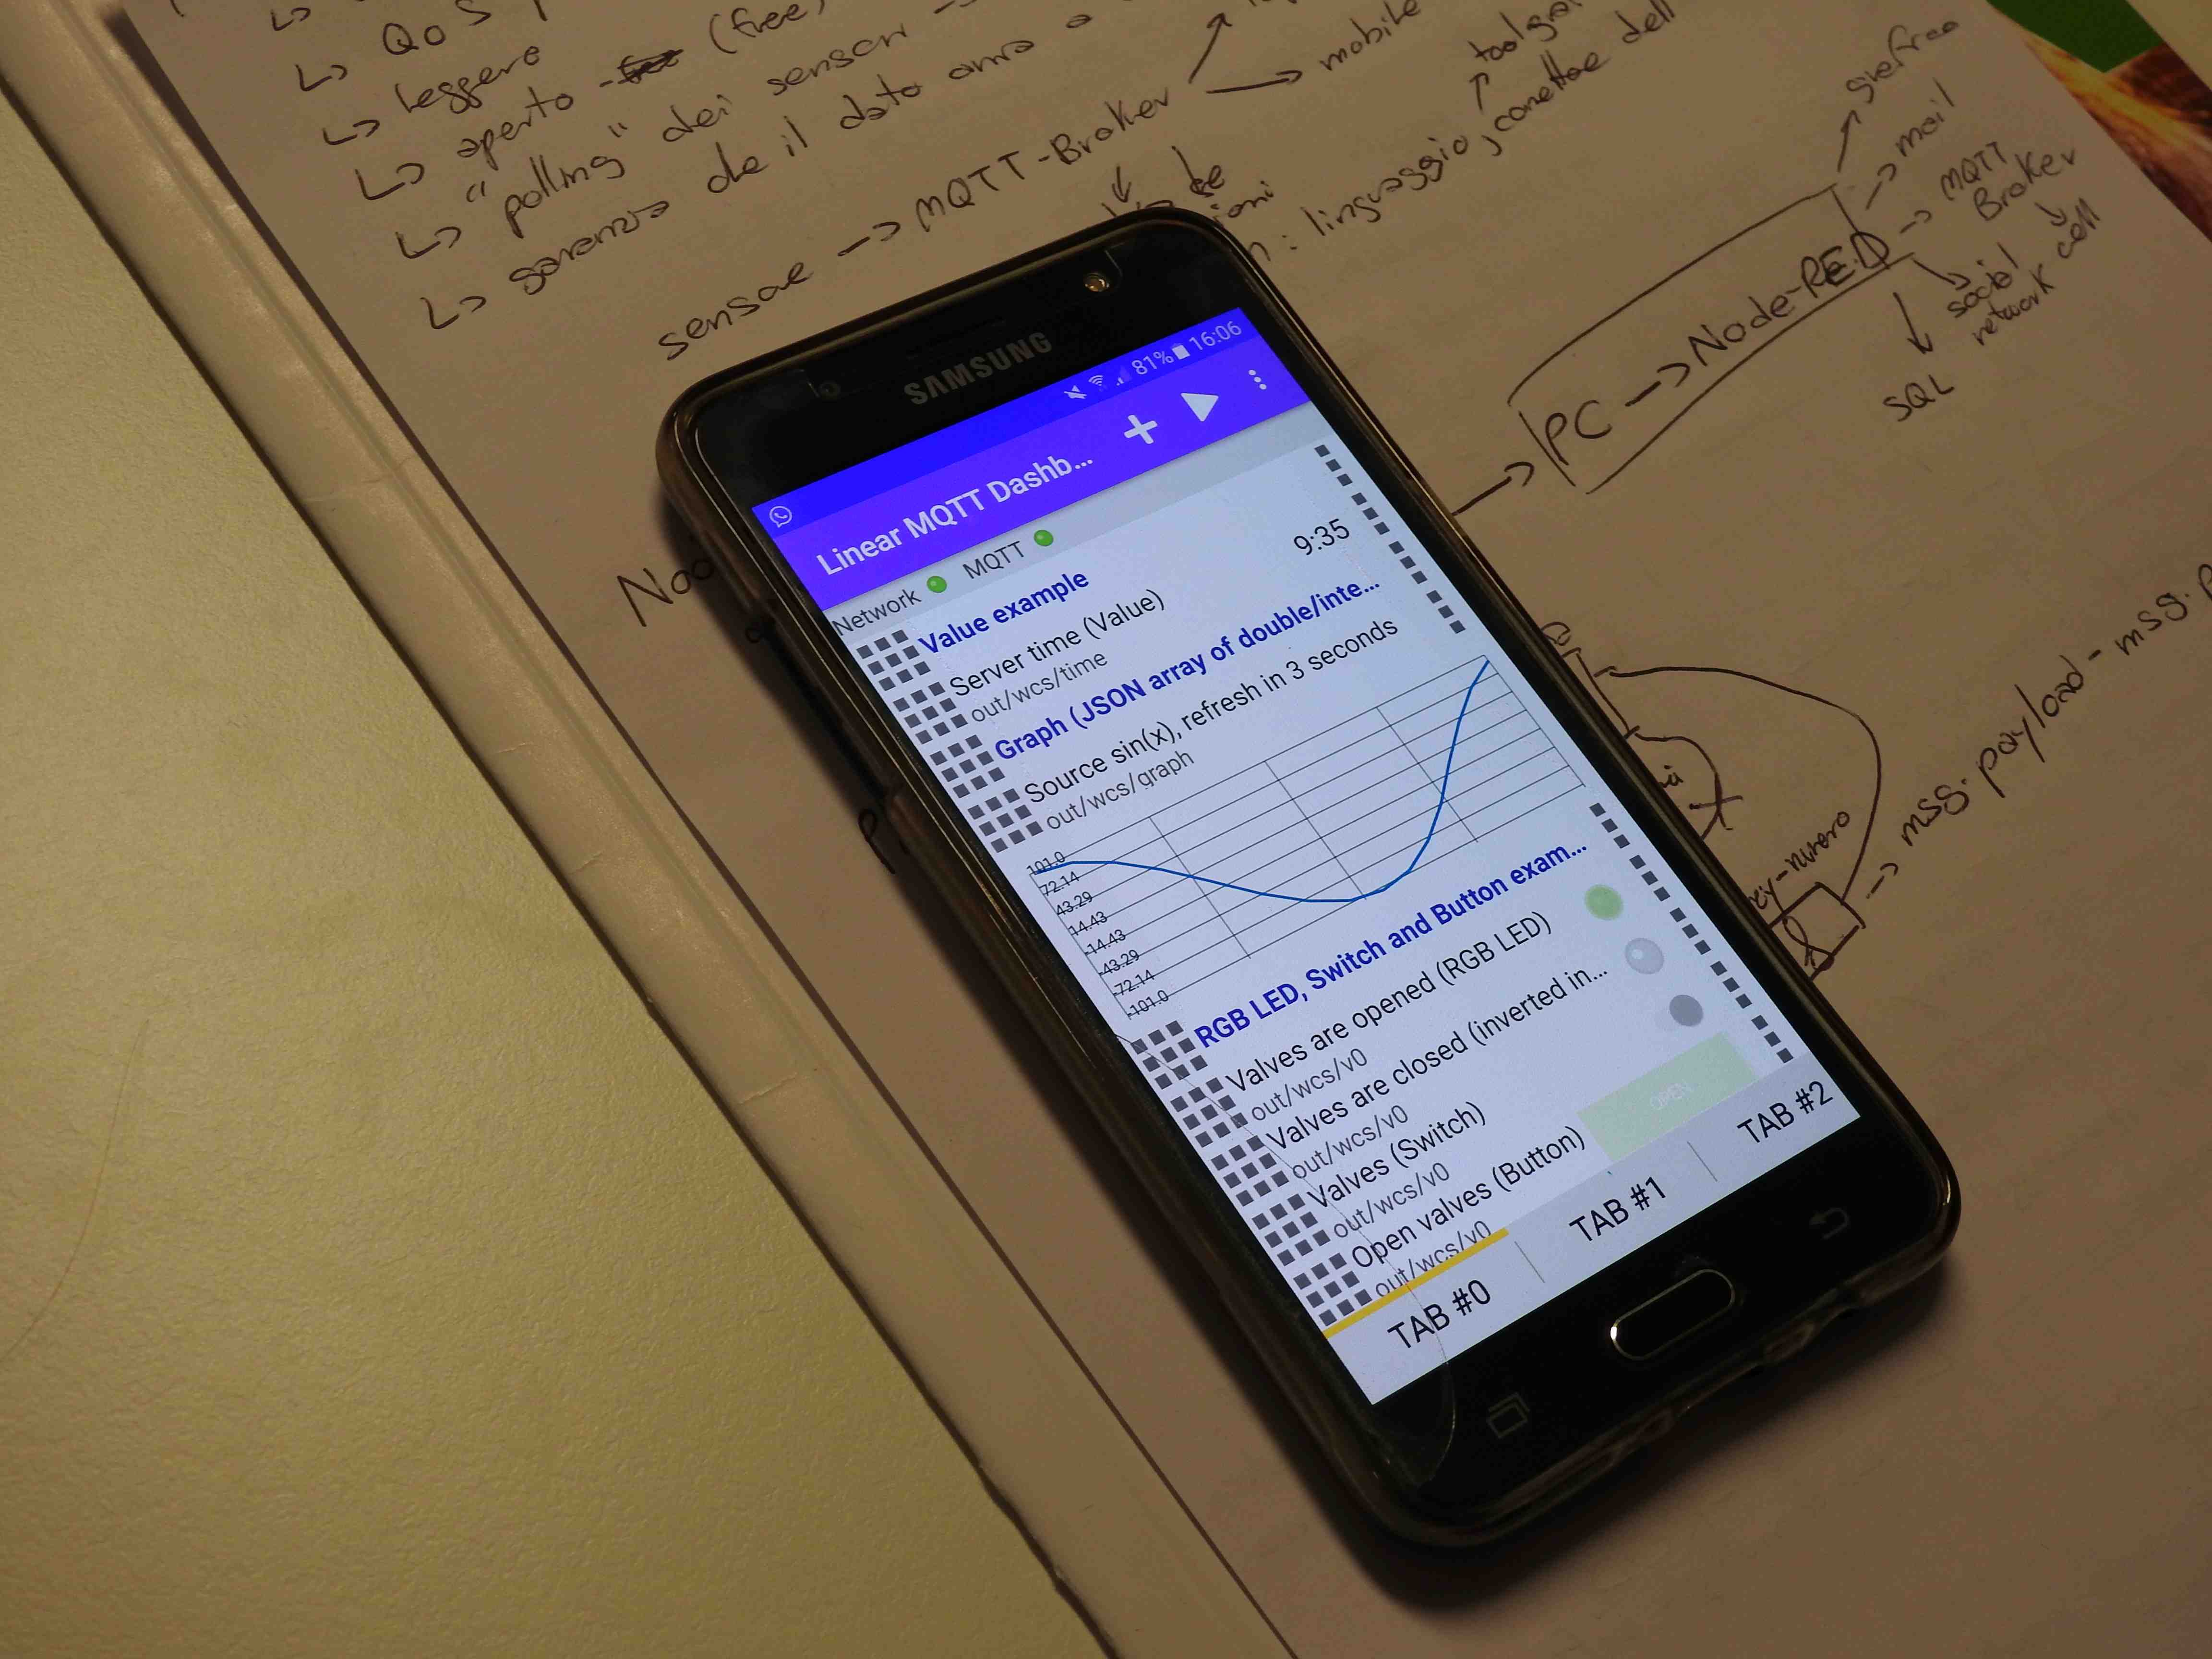 QoS
↳ leggero
↳ aperto - (free)
↳ "polling" dei sensori →
↳ garanzia che il dato
sensore → MQTT-Broker
→ mobile
: linguaggio,
PC → Node-RED
→ mail
→ MQTT
Broker
cell
social
network
SQL
→ msg.payload - msg.
SAMSUNG
81% 16:06
Linear MQTT Dashb...
Network MQTT
Value example
Server time (Value) 9:35
out/wcs/time
Graph (JSON array of double/inte...
Source sin(x), refresh in 3 seconds
out/wcs/graph
101.0
72.14
43.29
14.43
-14.43
-43.29
-72.14
-101.0
RGB LED, Switch and Button exam...
Valves are opened (RGB LED)
out/wcs/v0
Valves are closed (inverted in...
out/wcs/v0
Valves (Switch)
out/wcs/v0
Open valves (Button) OPEN
out/wcs/v0
TAB #0 TAB #1 TAB #2